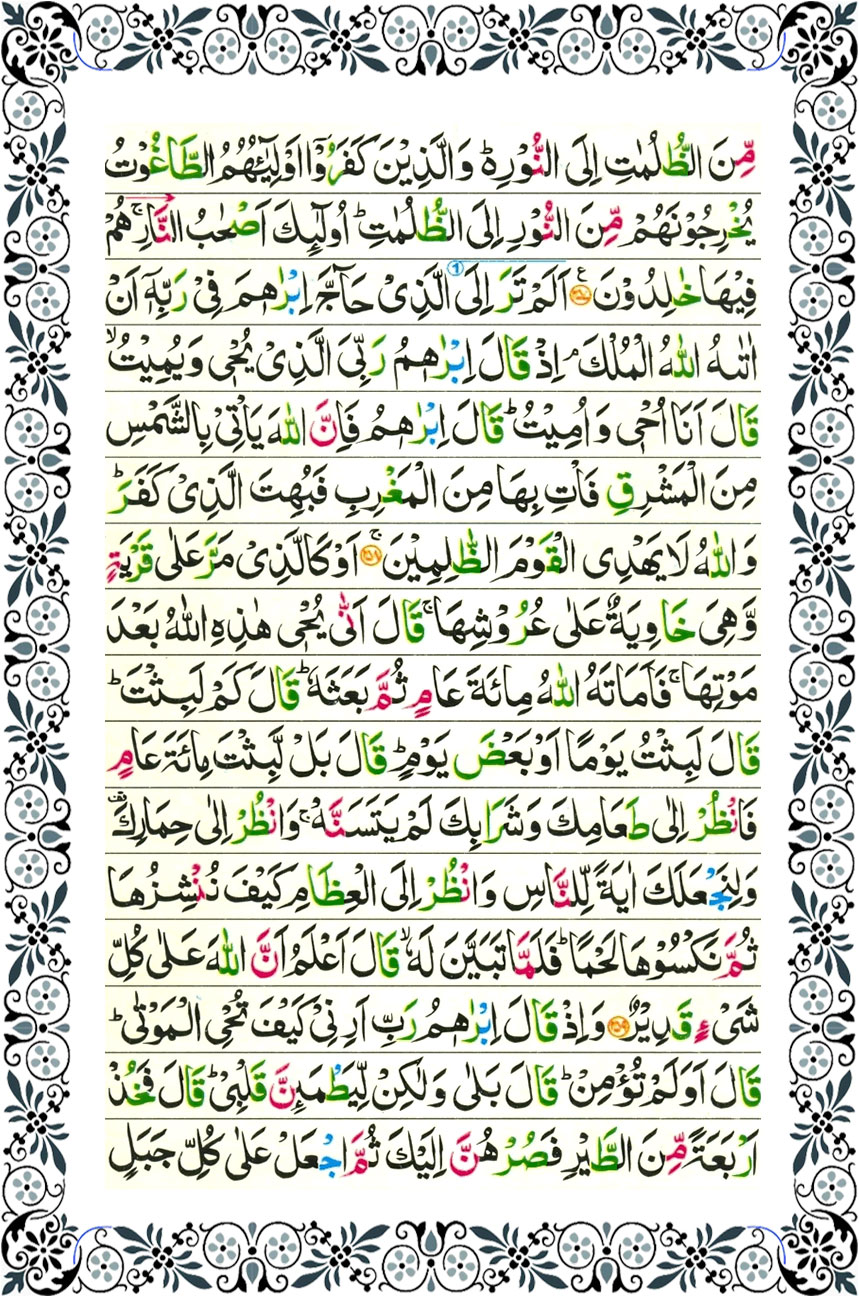 مِّنَ الظُّلُمٰتِ اِلَى النُّوْرِ۬ؕ وَالَّذِيْنَ كَفَرُوْۤا اَوْلِيٰٓـُٔهُمُ الطَّاغُوْتُ
يُخْرِجُوْنَهُمْ مِّنَ النُّوْرِ اِلَى الظُّلُمٰتِؕ اُولٰٓئِكَ اَصْحٰبُ النَّارِۚ هُمْ
فِيْهَا خٰلِدُوْنَ ﴿۲۵۷﴾ ع ① اَلَمْ تَرَ اِلَى الَّذِىْ حَآجَّ اِبْرٰهٖمَ فِىْ رَبِّهٖۤ اَنْ
اٰتٰٮهُ اللّٰهُ الْمُلْكَۘ اِذْ قَالَ اِبْرٰهٖمُ رَبِّىَ الَّذِىْ يُحْىٖ وَيُمِيْتُۙ
قَالَ اَنَا اُحْىٖ وَاُمِيْتُؕ قَالَ اِبْرٰهٖمُ فَاِنَّ اللّٰهَ يَاْتِىْ بِالشَّمْسِ
مِنَ الْمَشْرِقِ فَاْتِ بِهَا مِنَ الْمَغْرِبِ فَبُهِتَ الَّذِىْ كَفَرَؕ
وَاللّٰهُ لَا يَهْدِى الْقَوْمَ الظّٰلِمِيْنَۚ ﴿۲۵۸﴾ اَوْ كَالَّذِىْ مَرَّ عَلٰى قَرْيَةٍ
وَّهِىَ خَاوِيَةٌ عَلٰى عُرُوْشِهَاۚ قَالَ اَنّٰى يُحْىٖ هٰذِهِ اللّٰهُ بَعْدَ
مَوْتِهَاۚ فَاَمَاتَهُ اللّٰهُ مِائَةَ عَامٍ ثُمَّ بَعَثَهٗؕ قَالَ كَمْ لَبِثْتَؕ
قَالَ لَبِثْتُ يَوْمًا اَوْ بَعْضَ يَوْمٍؕ قَالَ بَلْ لَّبِثْتَ مِائَةَ عَامٍ
فَانْظُرْ اِلٰى طَعَامِكَ وَشَرَابِكَ لَمْ يَتَسَنَّهْۚ وَانْظُرْ اِلٰى حِمَارِكَ
وَلِنَجْعَلَكَ اٰيَةً لِّلنَّاسِ وَانْظُرْ اِلَى الْعِظَامِ كَيْفَ نُنْشِزُهَا
ثُمَّ نَكْسُوْهَا لَحْمًاؕ فَلَمَّا تَبَيَّنَ لَهٗۙ قَالَ اَعْلَمُ اَنَّ اللّٰهَ عَلٰى كُلِّ
شَىْءٍ قَدِيْرٌ ﴿۲۵۹﴾ وَاِذْ قَالَ اِبْرٰهٖمُ رَبِّ اَرِنِىْ كَيْفَ تُحْىِ الْمَوْتٰىؕ
قَالَ اَوَلَمْ تُؤْمِنْؕ قَالَ بَلٰى وَلٰكِنْ لِّيَطْمَئِنَّ قَلْبِىْؕ قَالَ فَخُذْ
اَرْبَعَةً مِّنَ الطَّيْرِ فَصُرْهُنَّ اِلَيْكَ ثُمَّ اجْعَلْ عَلٰى كُلِّ جَبَلٍ